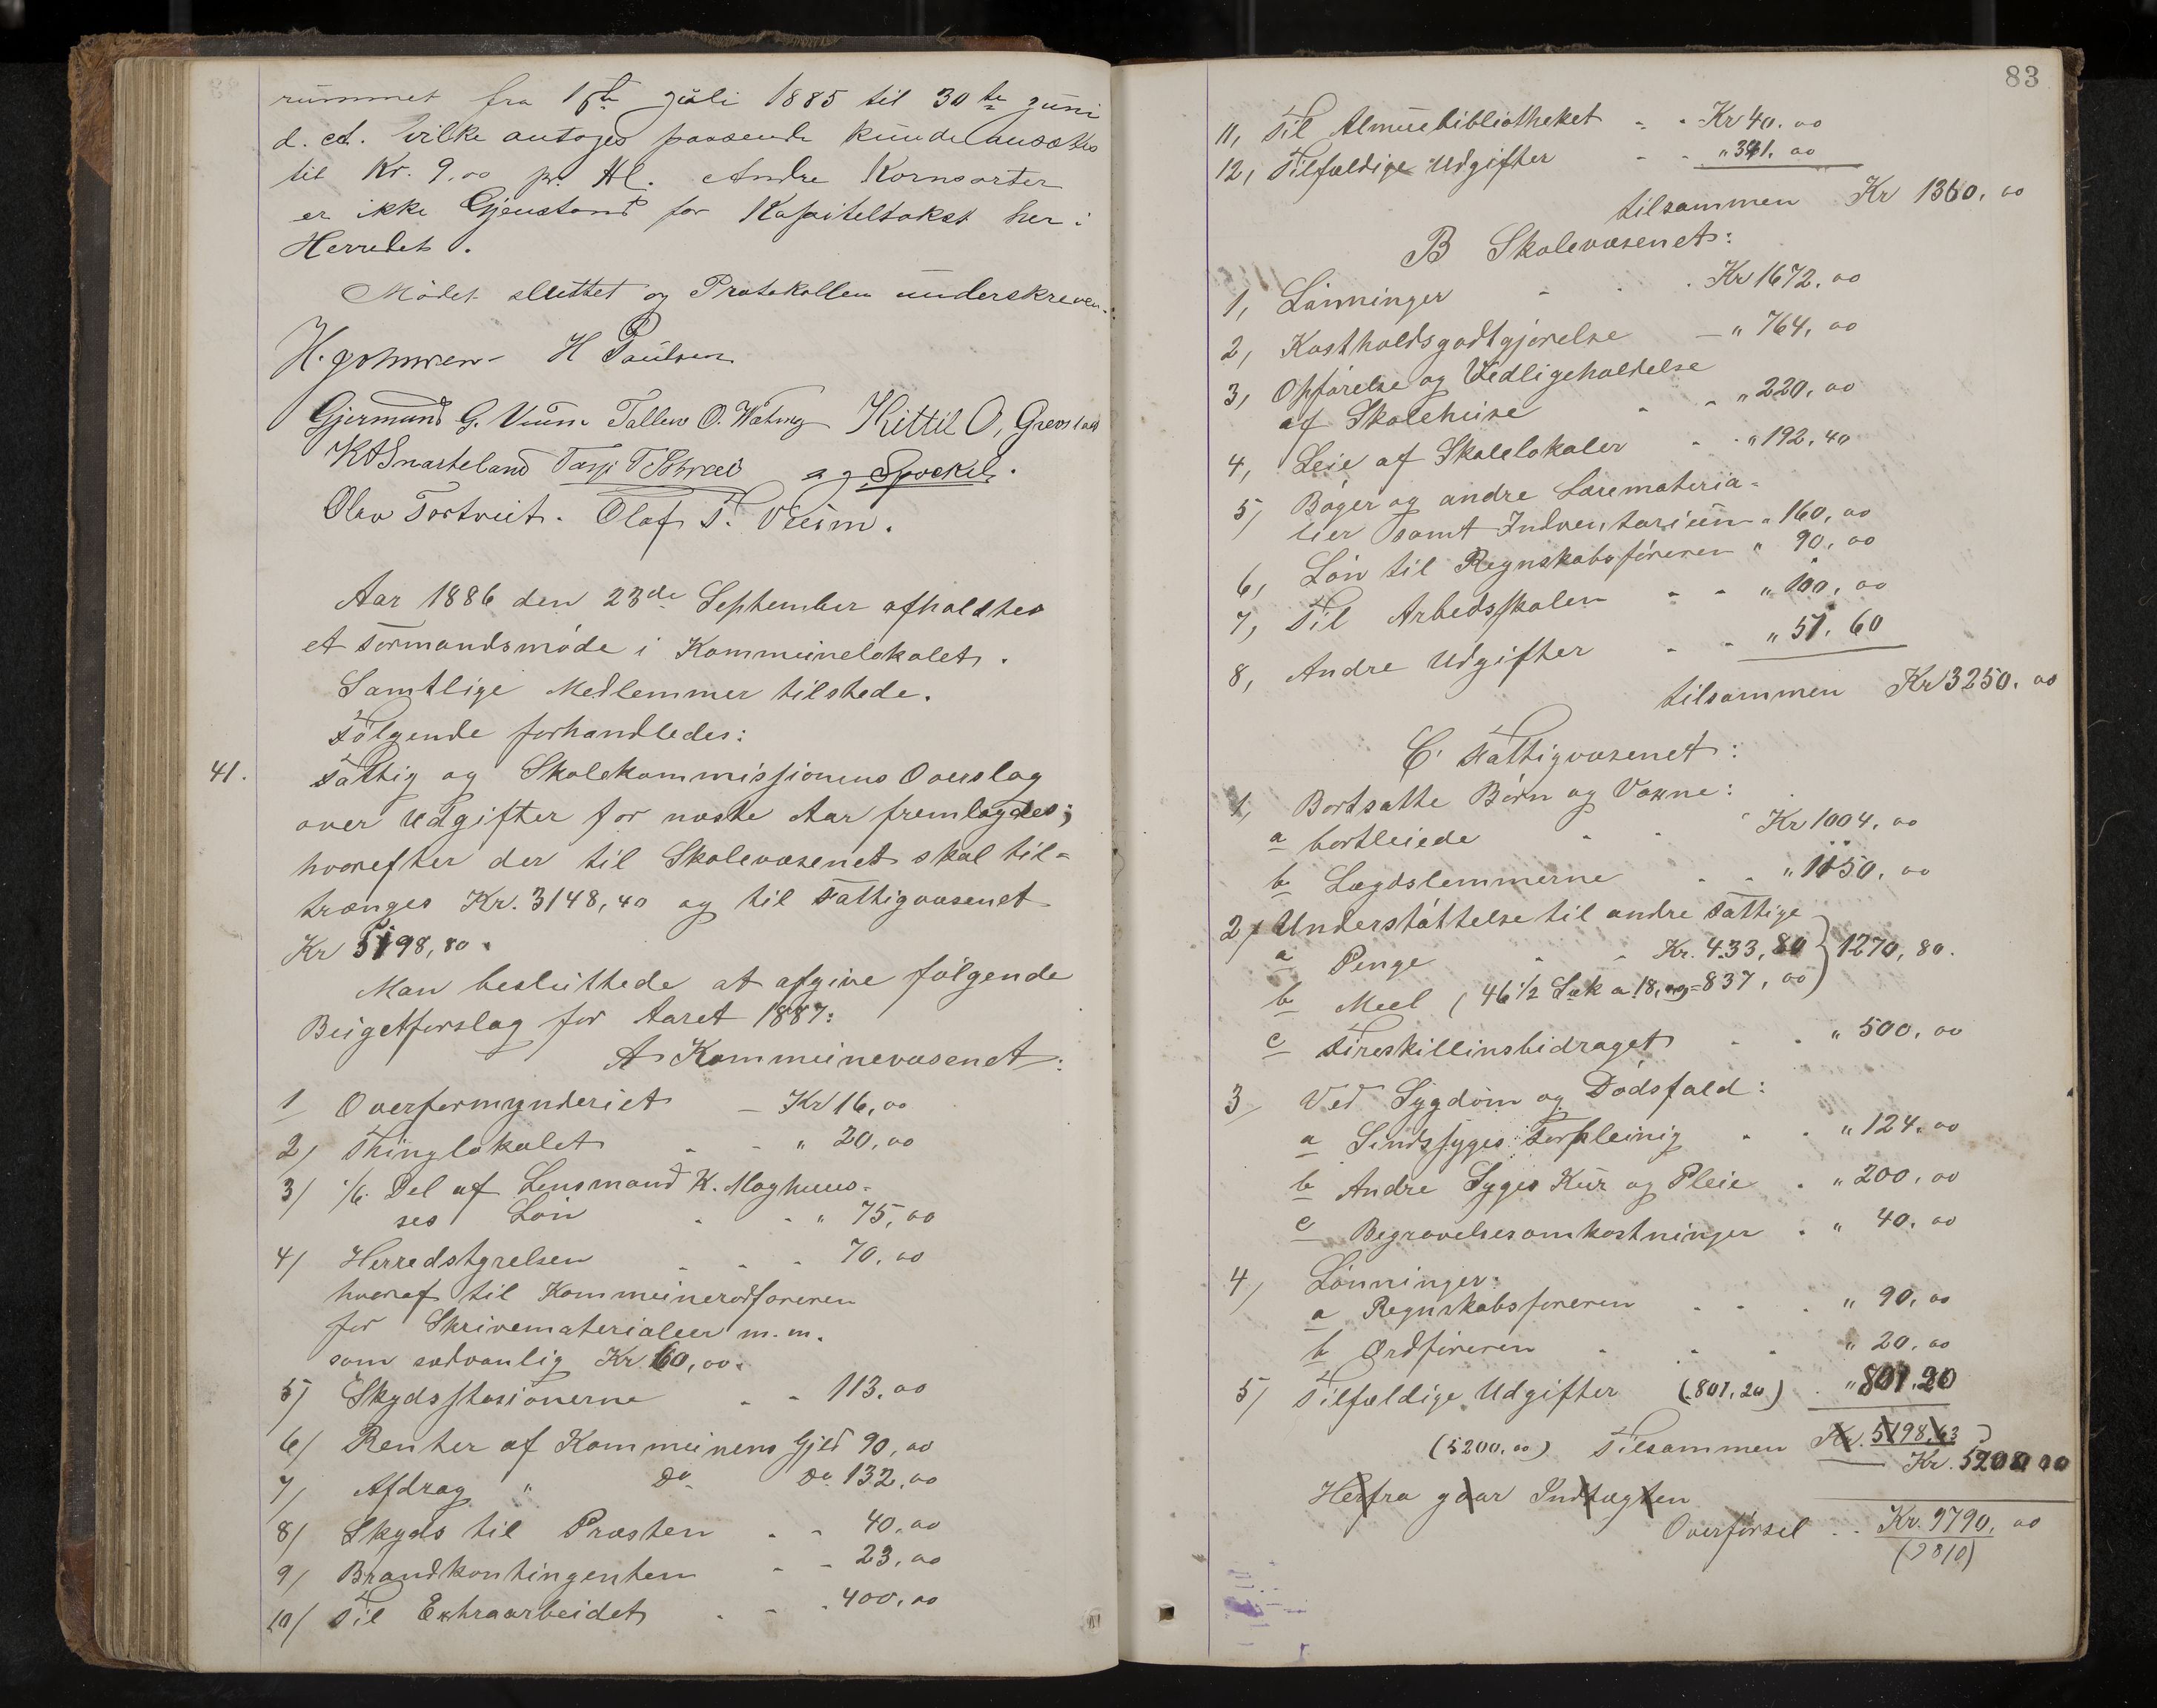 rummet fra 1ste Juli 1885 til 30te Juni
d. A. hvilke antoges passende kunde ansættes
til Kr. 9,00 pr. Hl. Andre Kornsorter
er ikke Gjenstand for Kapiteltakst her i
Herredet.
Mødet sluttet og Protokollen underskreven.
H. Johnsen H Paulsen
Gjermund G. Veum Tallev O. Kittil O, Grevstad
Tarje T
Olav Tortveit. Olaf T. Veum.
Aar 1886 den 23de September afholdtes
et Formandsmøde i Kommunelokalet.
Samtlige Medlemmer tilstede.
Følgende forhandledes:
41. Fattig og Skolekommissionens Overslag
over Udgifter for næste Aar fremlagdes;
hvorefter der til Skolevæsenet skal til-
trænges Kr. 3148,40 og til Fattigvæsenet
Kr 5198,80.
Man besluttede at afgive følgende
Bugetforslag for Aaret 1887:
A Kommunevæsenet:
1 Overformynderiet – Kr 16,00
2) Thinglokalet - - " 20,00
3) 1/6 Del af Lensmand K. Maghuus-
ses Løn - - " 75,00
4) Herredstyrelsen - - - 70,00
hvoraf til Kommuneordføreren
for Skrivematerialier m.m.
som sædvanlig Kr 60,00.
5) Skydsstasionerne - - 113.00
6) Renter af Kommunens Gjeld 90,00
7) Afdrag " Do Do 132,00
8) Skyds til Præsten - - 40,00
9) Brandkontingenten - - 23,00
10) Til Extraarbeidet - - - 400,00
83
11, Til Almuebibliotheket - - Kr 40.00
12, Tilfældige Udgifter - - " 341.00
tilsammen Kr 1360.00
B Skolevæsenet:
1, Lønninger - - - Kr 1672,00
2, Kostholdsgodtgjørelse – " 764,00
3, Opførelse og Vedligeholdelse
af Skolehuse - - " 220,00
4, Leie af Skolelokaler - - " 192,40
5) Bøger og andre Læremateria-
lier samt Indventarium " 160,00
6, Løn til Regnskabsføreren " 90,00
7, Til Arbedsskolen - - " 100,00
8, Andre Udgifter - - " 51,60
tilsammen Kr 3250.00
C. Fattigvæsenet:
1, Bortsatte Børn og Voxne:
a bortleiede - - - Kr 1004,00
b Lægdslemmerne - - " 1150,00
2, Understøttelse til andre Fattige
a Penge - - Kr. 433,80 } 1270,80.
b Meel (46 1/2 Sæk a 18,00 = 837,00
c Fireskillinsbidraget - - " 500,00
3, Ved Sygdom og Dødsfald:
a Sindssyges Forpleinig - - " 124.00
b Andre Syges Kur og Pleie - " 200,00
c Begravelsesomkostninger - " 40,00
4, Lønninger:
a Regnskabsføreren - - - " 90,00
b Ordføreren - - - " 20,00
5) Tilfældige Udgifter (801,20) - " 801,20
(5200,00) Tilsammen Kr. 5198,63
Kr. 5200 00
Herfra gaar Indtægten
Overførsel - - Kr. 9790,00
(9810)